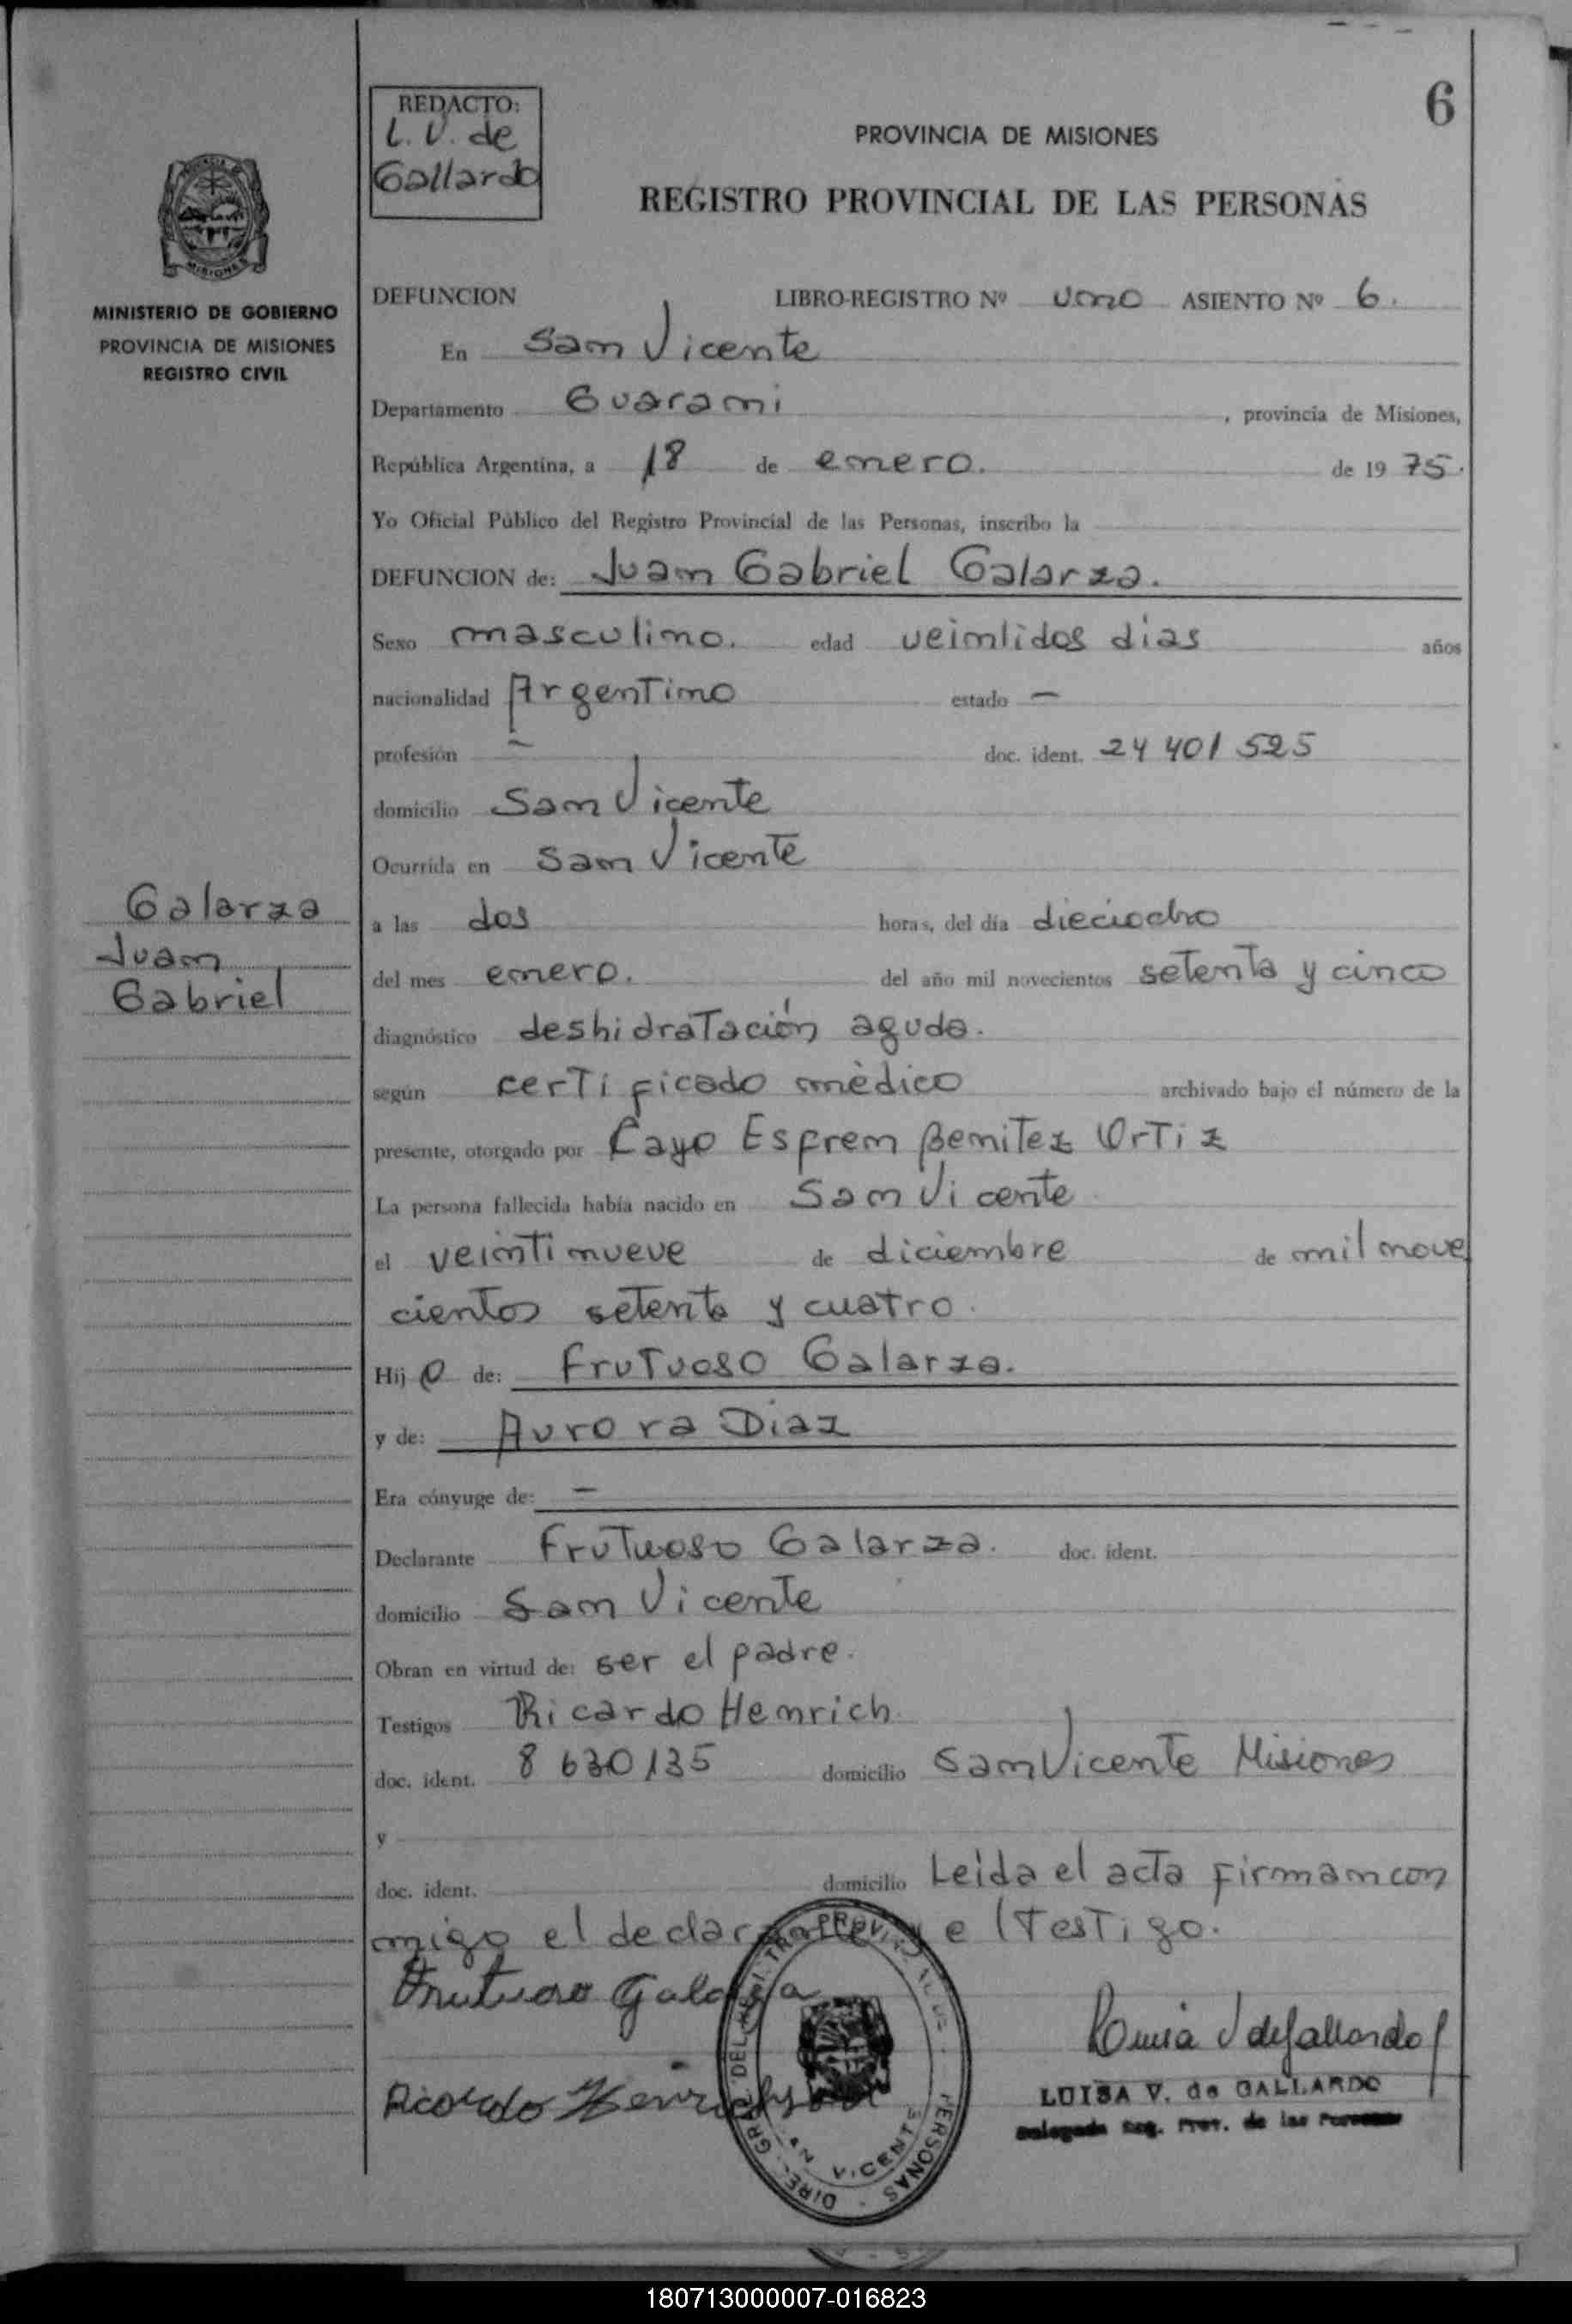 6
REDACTO:
L. V. de
Gallardo
PROVINCIA DE MISIONES
REGISTRO PROVINCIAL DE LAS PERSONAS
MISIONES
MINISTERIO DE GOBIERNO
PROVINCIA DE MISIONES
REGISTRO CIVIL
DEFUNCION LIBRO-REGISTRO Nº uno ASIENTO Nº 6.
En San Vicente
Departamento Guarani, provincia de Misiones,
República Argentina, a 18 de enero. de 1975.
Yo Oficial Público del Registro Provincial de las Personas, inscribo la
DEFUNCION de: Juan Gabriel Galarza.
Sexo masculino. edad veintidos dias años
nacionalidad Argentino estado —
profesión — doc. ident. 24 401 525
domicilio San Vicente
Ocurrida en San Vicente
Galarza
Juan
Gabriel
a las dos horas, del día dieciocho
del mes enero. del año mil novecientos setenta y cinco
diagnóstico deshidratación aguda.
según certificado mèdico archivado bajo el número de la
presente, otorgado por Cayo Esfrem Benitez Ortiz
La persona fallecida había nacido en San Vicente
el veintinueve de diciembre de mil nove
cientos setenta y cuatro.
Hijo de: Frutuoso Galarza.
y de: Aurora Diaz
Era cónyuge de: —
Declarante Frutuoso Galarza. doc. ident.
domicilio San Vicente
Obran en virtud de: ser el padre.
Testigos Ricardo Henrich
doc. ident. 8 630 135 domicilio San Vicente Misiones
y
doc. ident. domicilio Leída el acta firman con
migo el declarante y el testigo.
Frutuoso Galarza
Luisa V de Gallardo
Ricardo
LUISA V. de GALLARDO
Delegada Reg. Prov. de las Personas
DIREC. GRAL. DEL REGISTRO PROVINCIAL DE LAS PERSONAS
SAN VICENTE
180713000007-016823